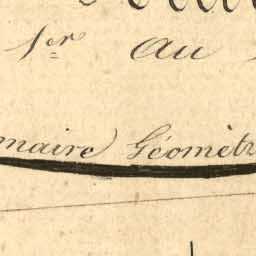 1er au
maire Géomètr